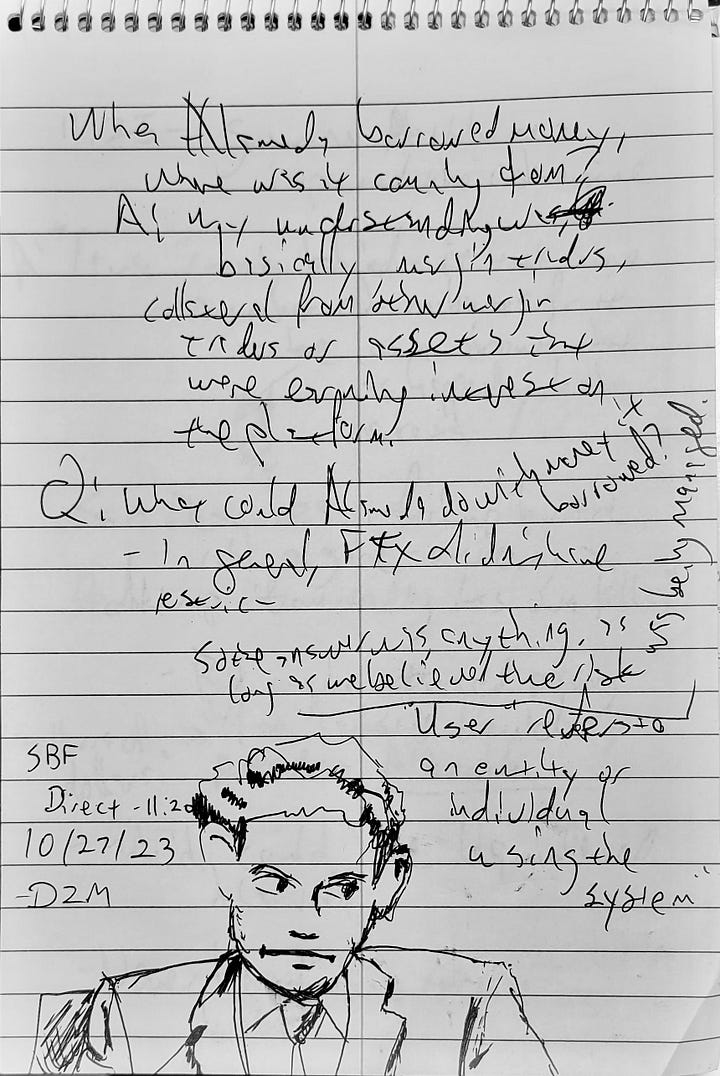 When Alameda borrowed money,
where was it coming from?
A: My understanding was,
basically margin trades,
collateral from other margin
trades or assets that
were earning interest on
the platform.
Q: What could Alameda do with money it borrowed?
- In general, FTX didn't have
restric-
So the answer was, anything, as
long as we believed the risk
was being managed.
"User" refers to
an entity or
individual
using the
system"
SBF
Direct - 11:20
10/27/23
-DZM